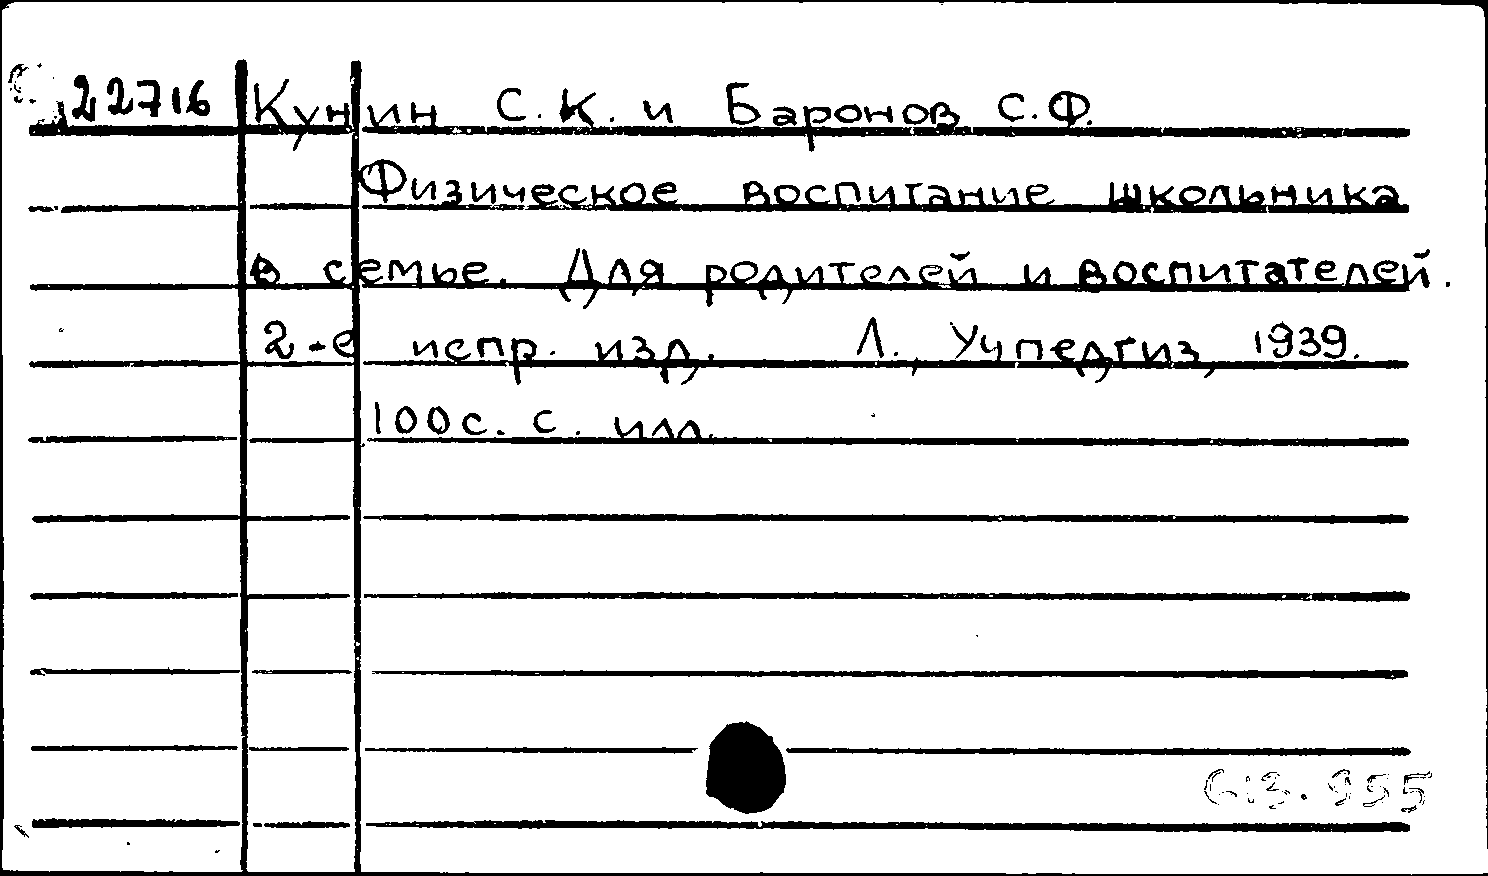 22716 Кунин С.К. и Баронов С.Ф.
Физическое воспитание школьника
в семье. Для родителей и воспитателей.
2-е испр. изд. Л., Учпедгиз, 1939.
100с. с. илл.
613.955